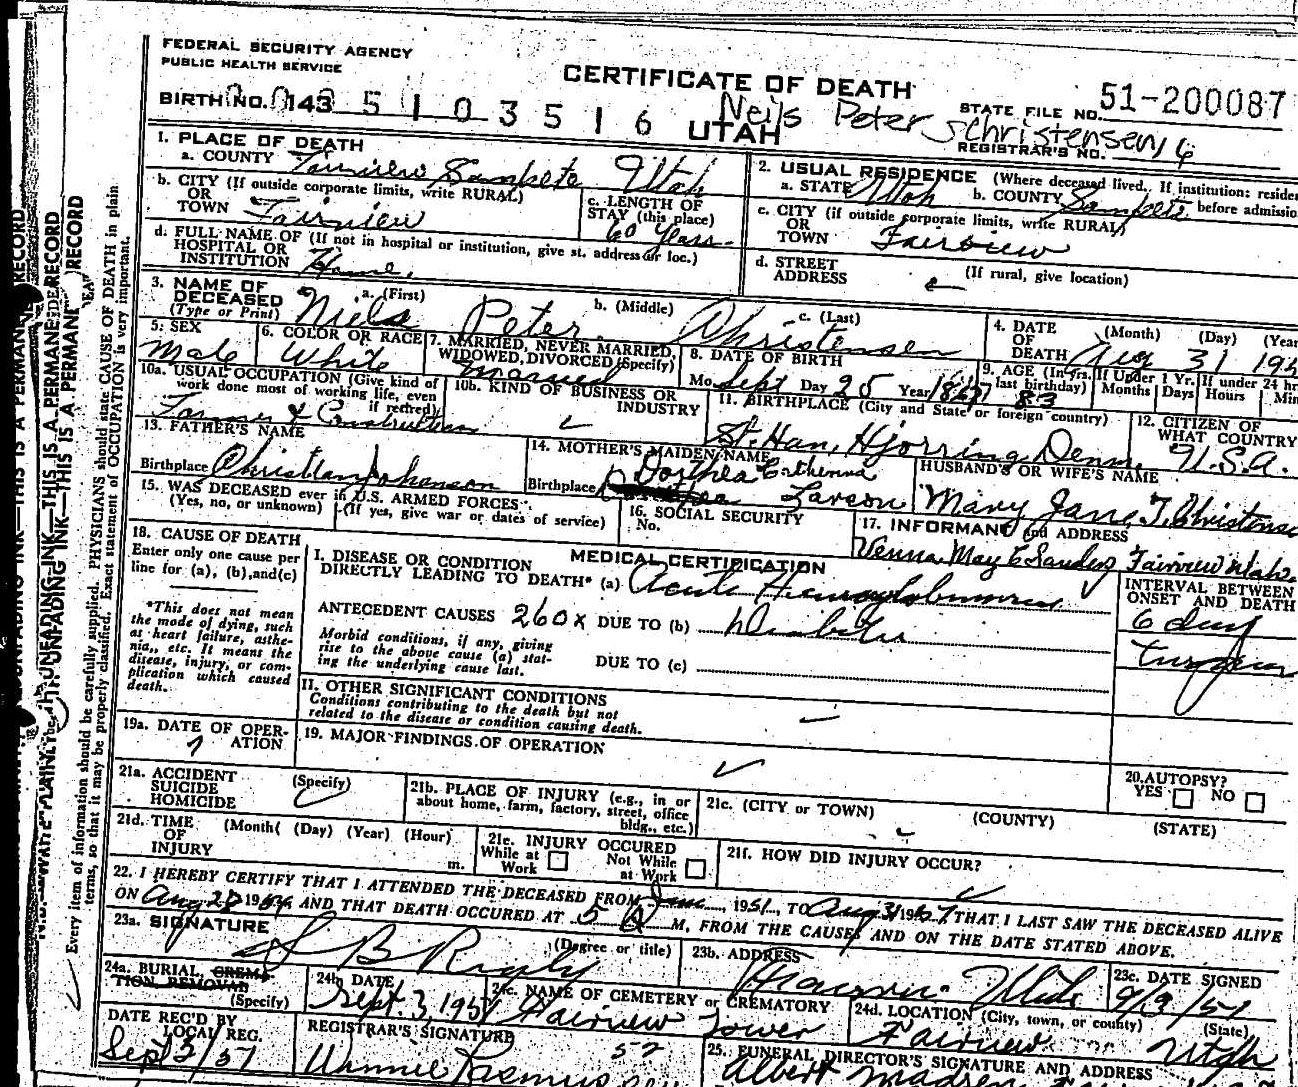 FEDERAL SECURITY AGENCY
PUBLIC HEALTH SERVICE
CERTIFICATE OF DEATH
STATE FILE NO. 51-200087
BIRTH NO. 143 5 1 0 3 5 1 6 UTAH
Neils Peter Christensen
REGISTRAR'S NO. 16
1. PLACE OF DEATH
a. COUNTY Fairview Sanpete Utah
b. CITY (If outside corporate limits, write RURAL)
OR
TOWN Fairview
c. LENGTH OF
STAY (this place)
60 Years
d. FULL NAME OF (If not in hospital or institution, give st. address or loc.)
HOSPITAL OR
INSTITUTION Home.
2. USUAL RESIDENCE (Where deceased lived. If institution: residen
a. STATE Utah b. COUNTY Sanpete before admissio
c. CITY (if outside corporate limits, write RURAL)
OR
TOWN Fairview
d. STREET (If rural, give location)
ADDRESS
3. NAME OF a. (First) b. (Middle) c. (Last)
DECEASED
(Type or Print) Niels Peter Christensen
4. DATE (Month) (Day) (Year
OF
DEATH Aug 31 195
5. SEX
Male
6. COLOR OR RACE
White
7. MARRIED, NEVER MARRIED,
WIDOWED, DIVORCED (Specify)
Married
8. DATE OF BIRTH
Mo. Sept Day 25 Year 1867
9. AGE (In yrs. If Under 1 Yr. If under 24 hr
last birthday) Months Days Hours Min
83
10a. USUAL OCCUPATION (Give kind of
work done most of working life, even
if retired)
Farmer & Construction
10b. KIND OF BUSINESS OR
INDUSTRY
11. BIRTHPLACE (City and State or foreign country)
St. Han, Hjorring, Denm.
12. CITIZEN OF
WHAT COUNTRY
U.S.A.
13. FATHER'S NAME
Birthplace Christian Johanson
14. MOTHER'S MAIDEN NAME
Dorthea Catherina
Birthplace Larson
HUSBAND'S OR WIFE'S NAME
Mary Jane T. Christense
15. WAS DECEASED ever in U.S. ARMED FORCES
(Yes, no, or unknown) (If yes, give war or dates of service)
16. SOCIAL SECURITY
No.
17. INFORMANT and ADDRESS
Venna May C Sanders Fairview Utah
18. CAUSE OF DEATH
Enter only one cause per
line for (a), (b), and (c)
*This does not mean
the mode of dying, such
as heart failure, asthe-
nia, etc. It means the
disease, injury, or com-
plication which caused
death.
MEDICAL CERTIFICATION
I. DISEASE OR CONDITION
DIRECTLY LEADING TO DEATH* (a) Acute
INTERVAL BETWEEN
ONSET AND DEATH
6 day
ANTECEDENT CAUSES 260X DUE TO (b) Diabetes
Morbid conditions, if any, giving
rise to the above cause (a) stat-
ing the underlying cause last.
DUE TO (c)
II. OTHER SIGNIFICANT CONDITIONS
Conditions contributing to the death but not
related to the disease or condition causing death.
19a. DATE OF OPER-
ATION
19. MAJOR FINDINGS OF OPERATION
20. AUTOPSY?
YES NO
21a. ACCIDENT (Specify)
SUICIDE
HOMICIDE
21b. PLACE OF INJURY (e.g., in or
about home, farm, factory, street, office
bldg., etc.)
21c. (CITY or TOWN) (COUNTY) (STATE)
21d. TIME (Month( (Day) (Year) (Hour)
OF
INJURY m.
21e. INJURY OCCURED
While at Not While
Work at Work
21f. HOW DID INJURY OCCUR?
22. I HEREBY CERTIFY THAT I ATTENDED THE DECEASED FROM Jan, 1951, TO Aug 31 1951 THAT I LAST SAW THE DECEASED ALIVE
ON Aug 28 1951 AND THAT DEATH OCCURED AT 5 A M, FROM THE CAUSES AND ON THE DATE STATED ABOVE.
23a. SIGNATURE (Degree or title)
23b. ADDRESS
Utah
23c. DATE SIGNED
9/3/51
24a. BURIAL, CREMA-
TION REMOVAD
(Specify)
24b. DATE
Sept. 3, 1951
24c. NAME OF CEMETERY or CREMATORY
Fairview Tower
24d. LOCATION (City, town, or county) (State)
Fairview Utah
DATE REC'D BY
LOCAL REG.
Sept 3/51
REGISTRAR'S SIGNATURE
Winnie Rasmus
25. FUNERAL DIRECTOR'S SIGNATURE AND ADDRESS
Albert Madsen
Every item of information should be carefully supplied. PHYSICIANS should state CAUSE OF DEATH in plain
terms, so that it may be properly classified. Exact statement of OCCUPATION is very important.
UNFADING INK—THIS IS A PERMANENT RECORD